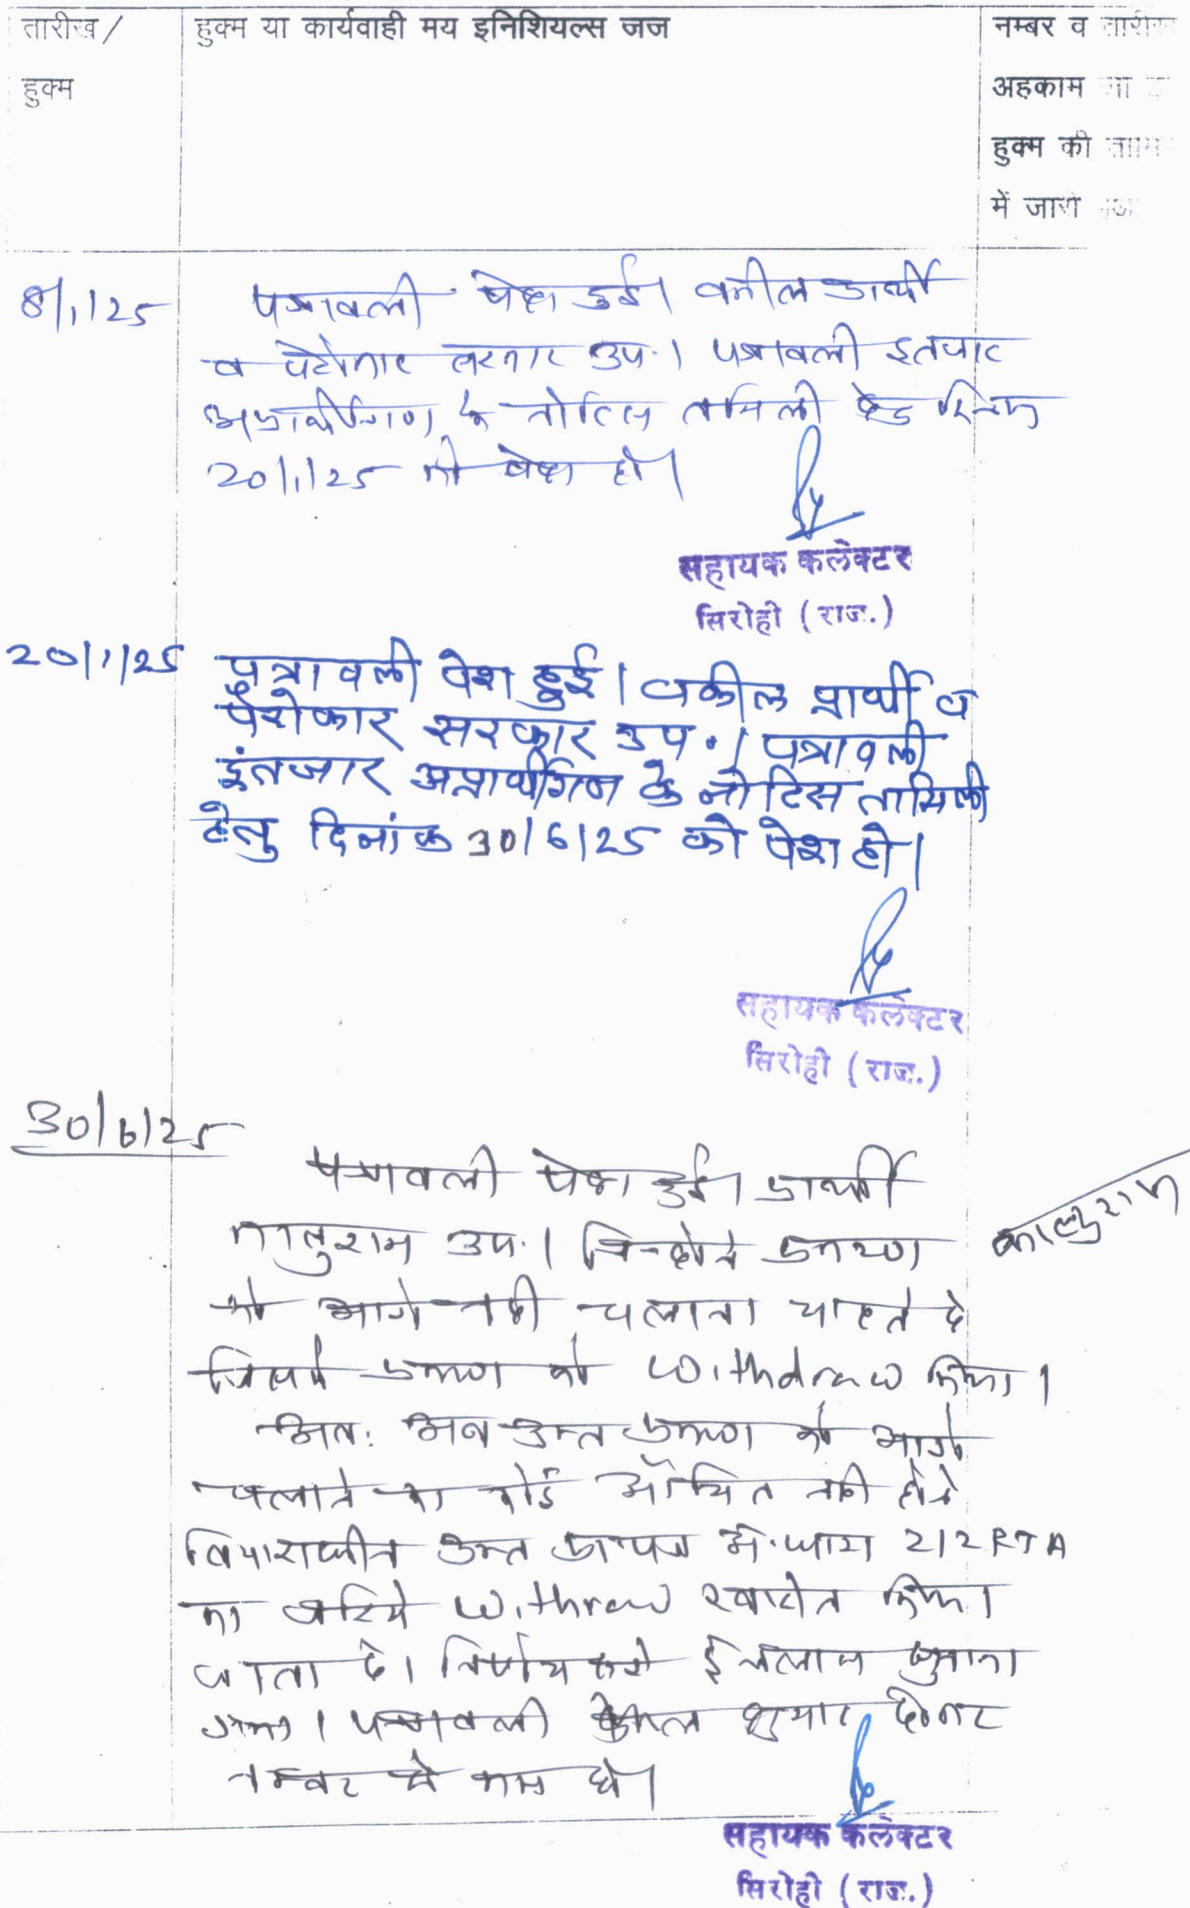 तारीख/
हुक्म
हुक्म या कार्यवाही मय इनिशियल्स जज
नम्बर व तारीख
अहकाम जो
हुक्म की तामि
में जारी हुआ
8/1/25
पत्रावली पेश हुई। वकील प्रार्थी
व पेरोकार सरकार उप.। पत्रावली इंतजार
अप्रार्थीगण के नोटिस तामिली हेतु दिनांक
20/1/25 को पेश हो।
सहायक कलेक्टर
सिरोही (राज.)
20/1/25
पत्रावली पेश हुई। वकील प्रार्थी व
पेरोकार सरकार उप.। पत्रावली
इंतजार अप्रार्थीगण के नोटिस तामिली
हेतु दिनांक 30/6/25 को पेश हो।
सहायक कलेक्टर
सिरोही (राज.)
30/6/25
पत्रावली पेश हुई। प्रार्थी
कालुराम उप.। जिन्होने प्रकरण
को आगे नही चलाना चाहते है
जिसमे प्रकरण को Withdraw किया।
कालुराम
अतः अब उक्त प्रकरण को आगे
चलाने का कोई औचित नही होने
विचाराधीन उक्त प्रा.पत्र अ.धारा 212 RTA
का जरिये Withraw खारीज किया
जाता है। निर्णय खुले ईजलास सुनाया
गया। पत्रावली फैसल शुमार होकर
नम्बर से कम हो।
सहायक कलेक्टर
सिरोही (राज.)